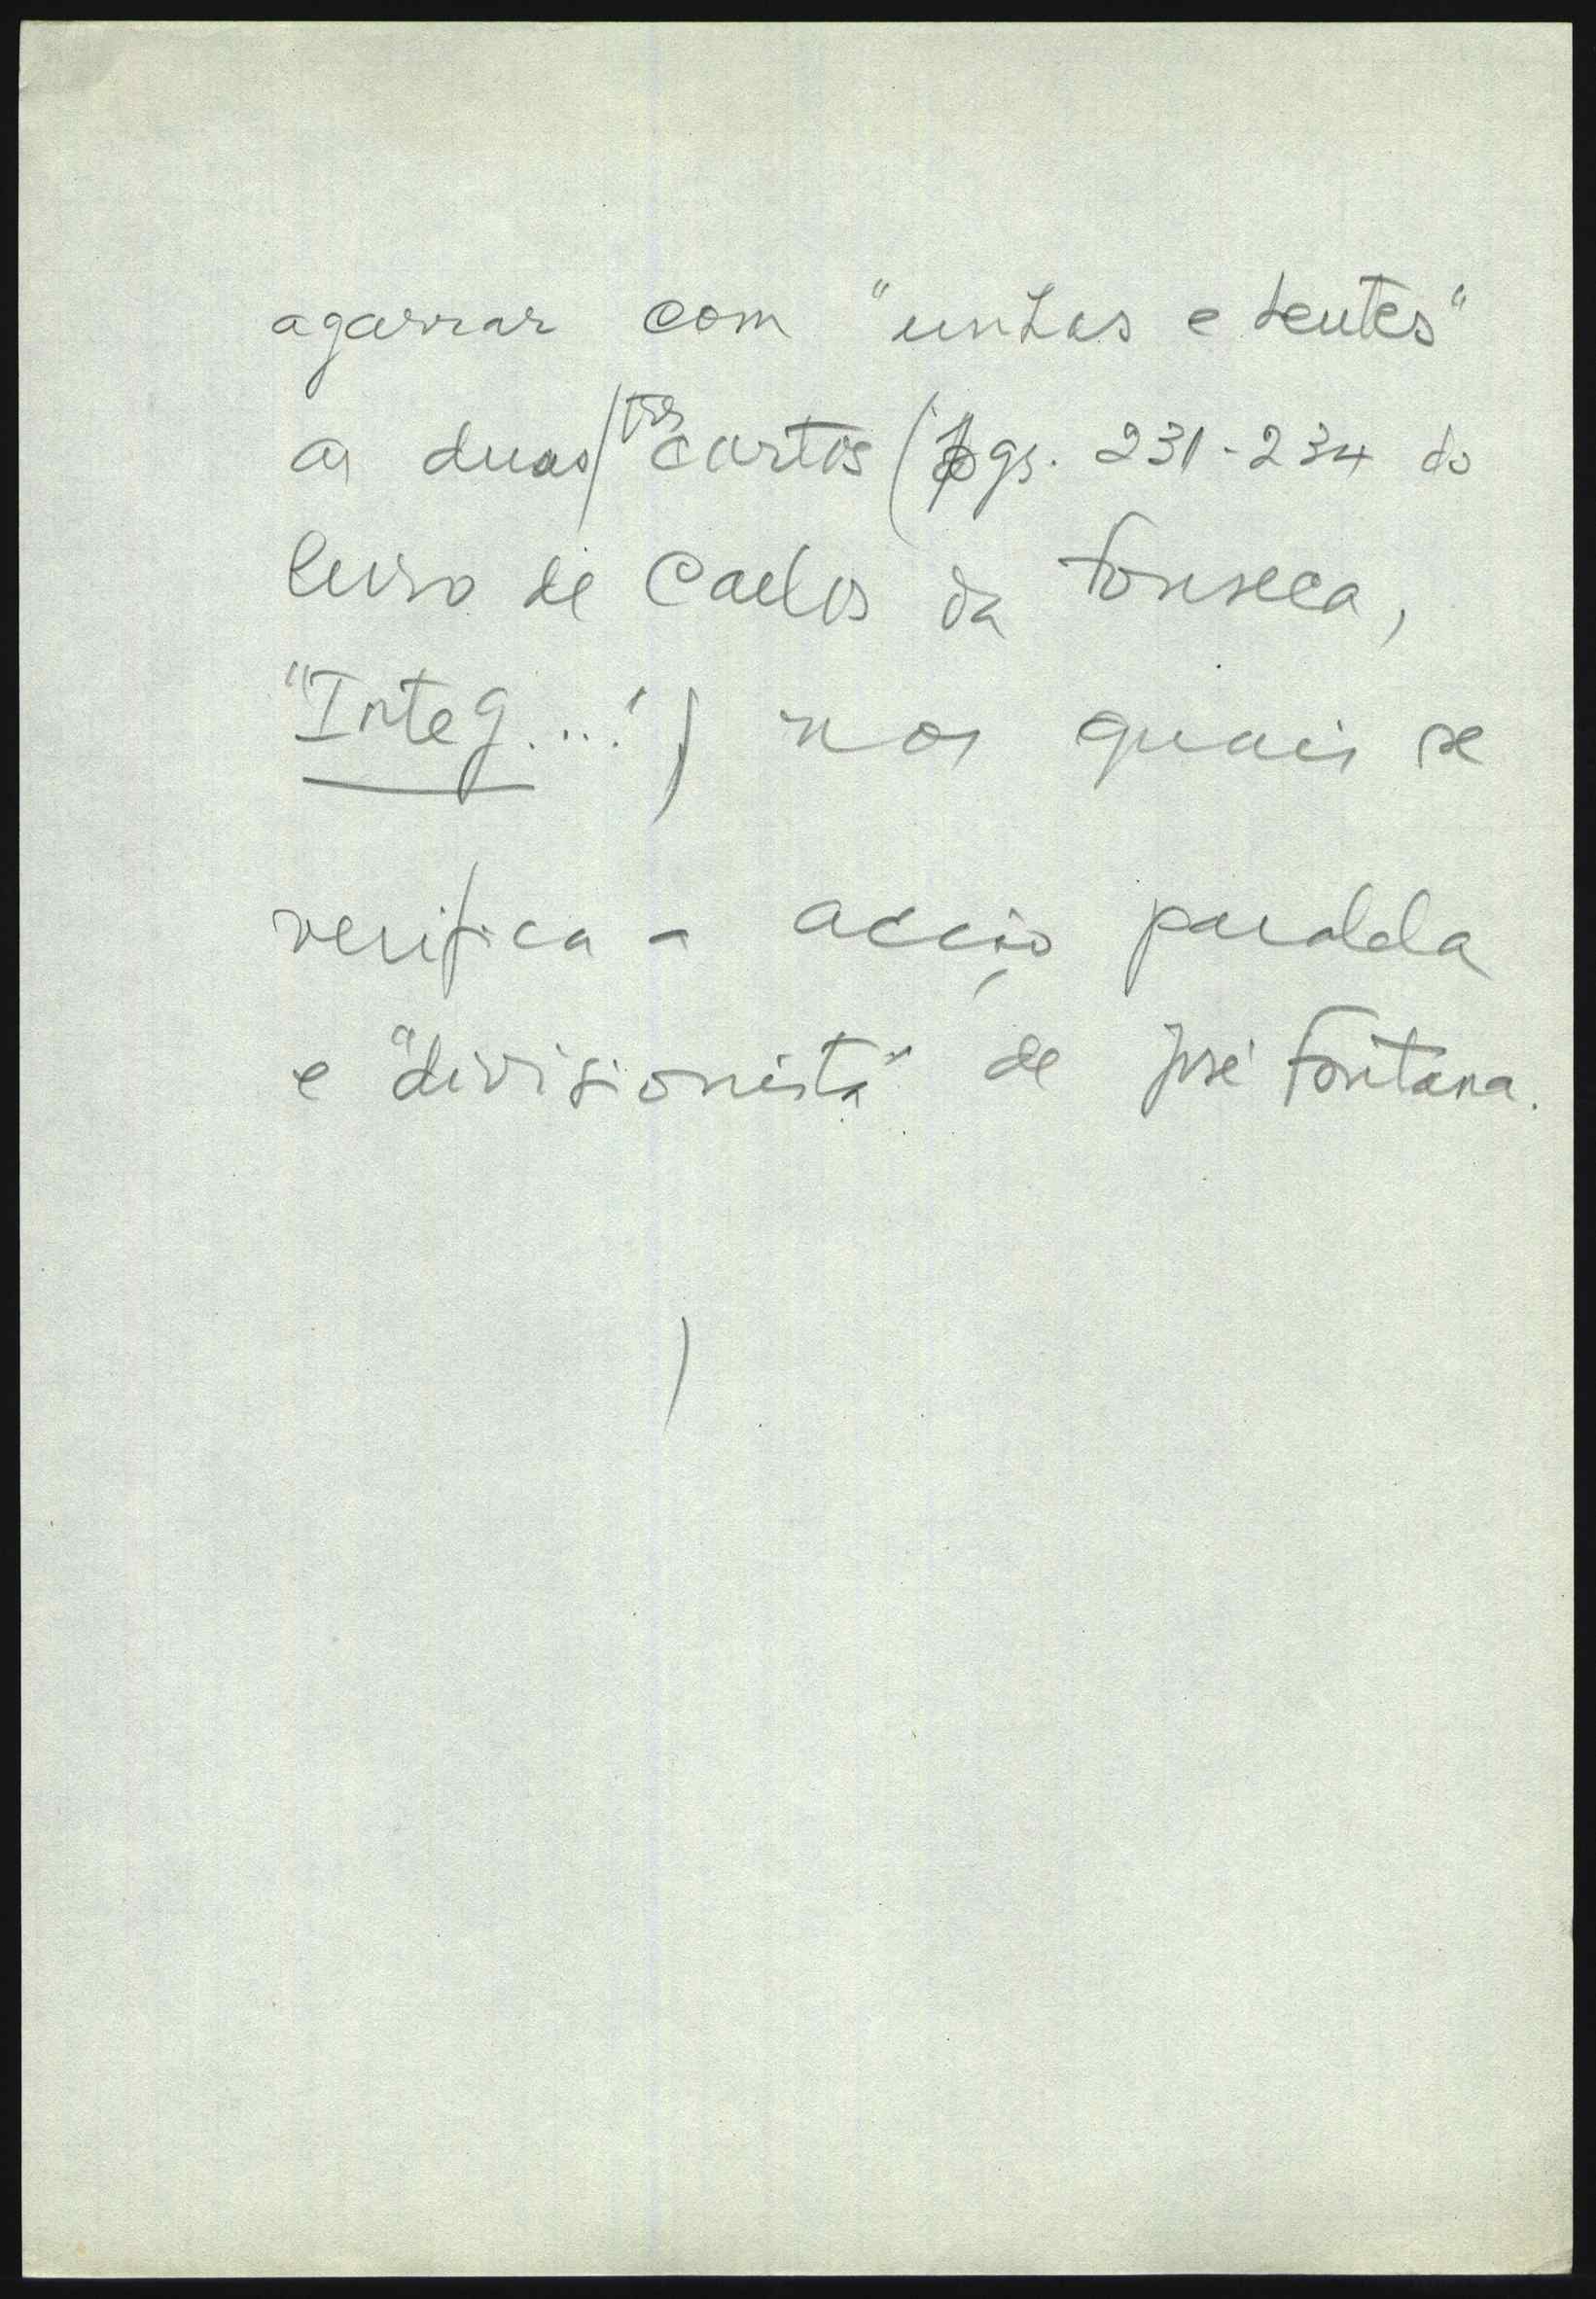 agarrar com "unhas e dentes"
as duas/três cartas (pgs. 231-234 do
livro de Carlos da Fonseca,
"Integ...") nos quais se
verifica a acção paralela
e "divisionista" de José Fontana.
)